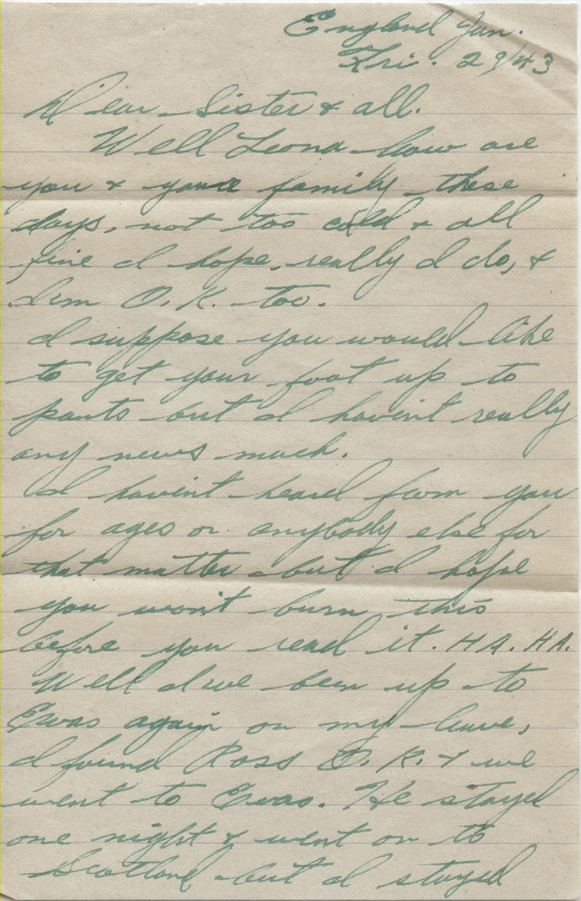 England Jan.
Fri. 29/43
Dear Sister & all.
Well Leona how are
you & your family these
days, not too cold & all
fine I hope, really I do, &
I'm O.K. too.
I suppose you would like
to get your foot up to
pants but I havint really
any news much.
I havint heard from you
for ages or anybody else for
that matter but I hope
you won't burn this
before you read it. HA. HA.
Well I've been up to
Evas again on my leave,
I found Ross O.K. & we
went to Evas. He stayed
one night & went on to
Scotland but I stayed